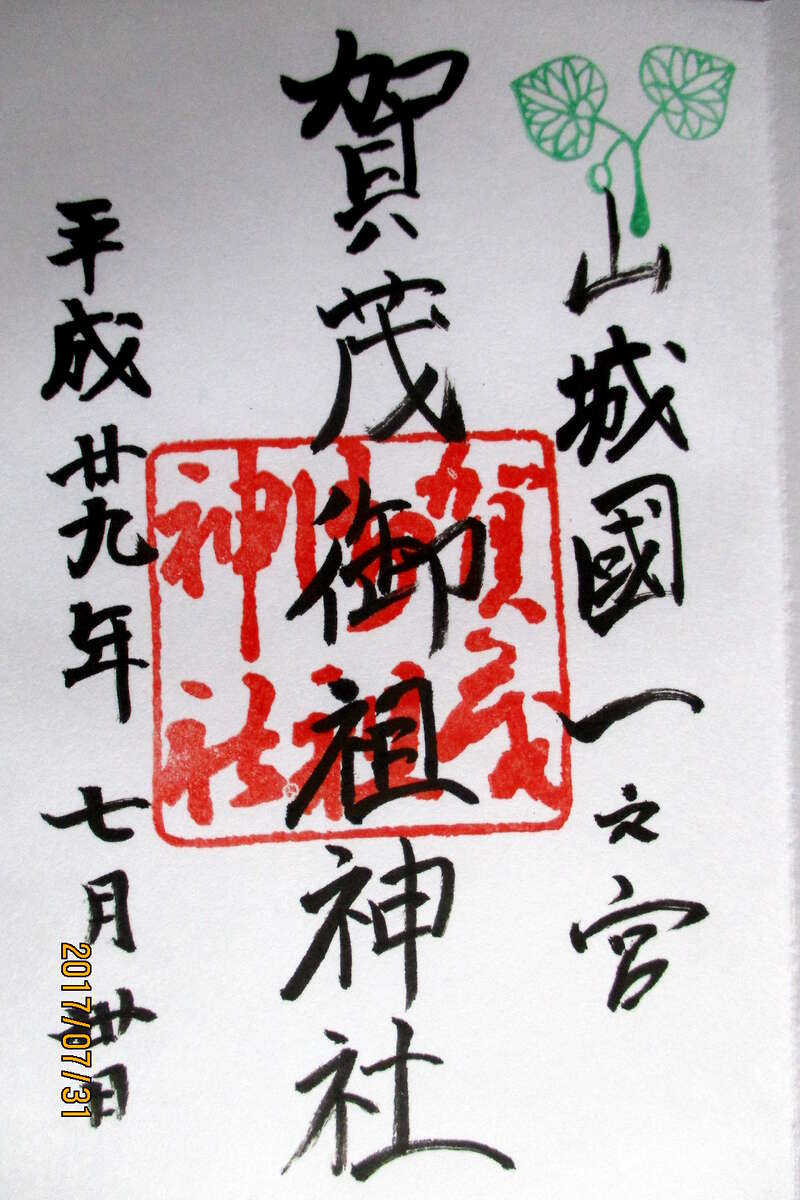 山城國一之宮
賀茂御祖神社
賀茂
御祖
神社
平成廿九年 七月卅日
2017/07/31